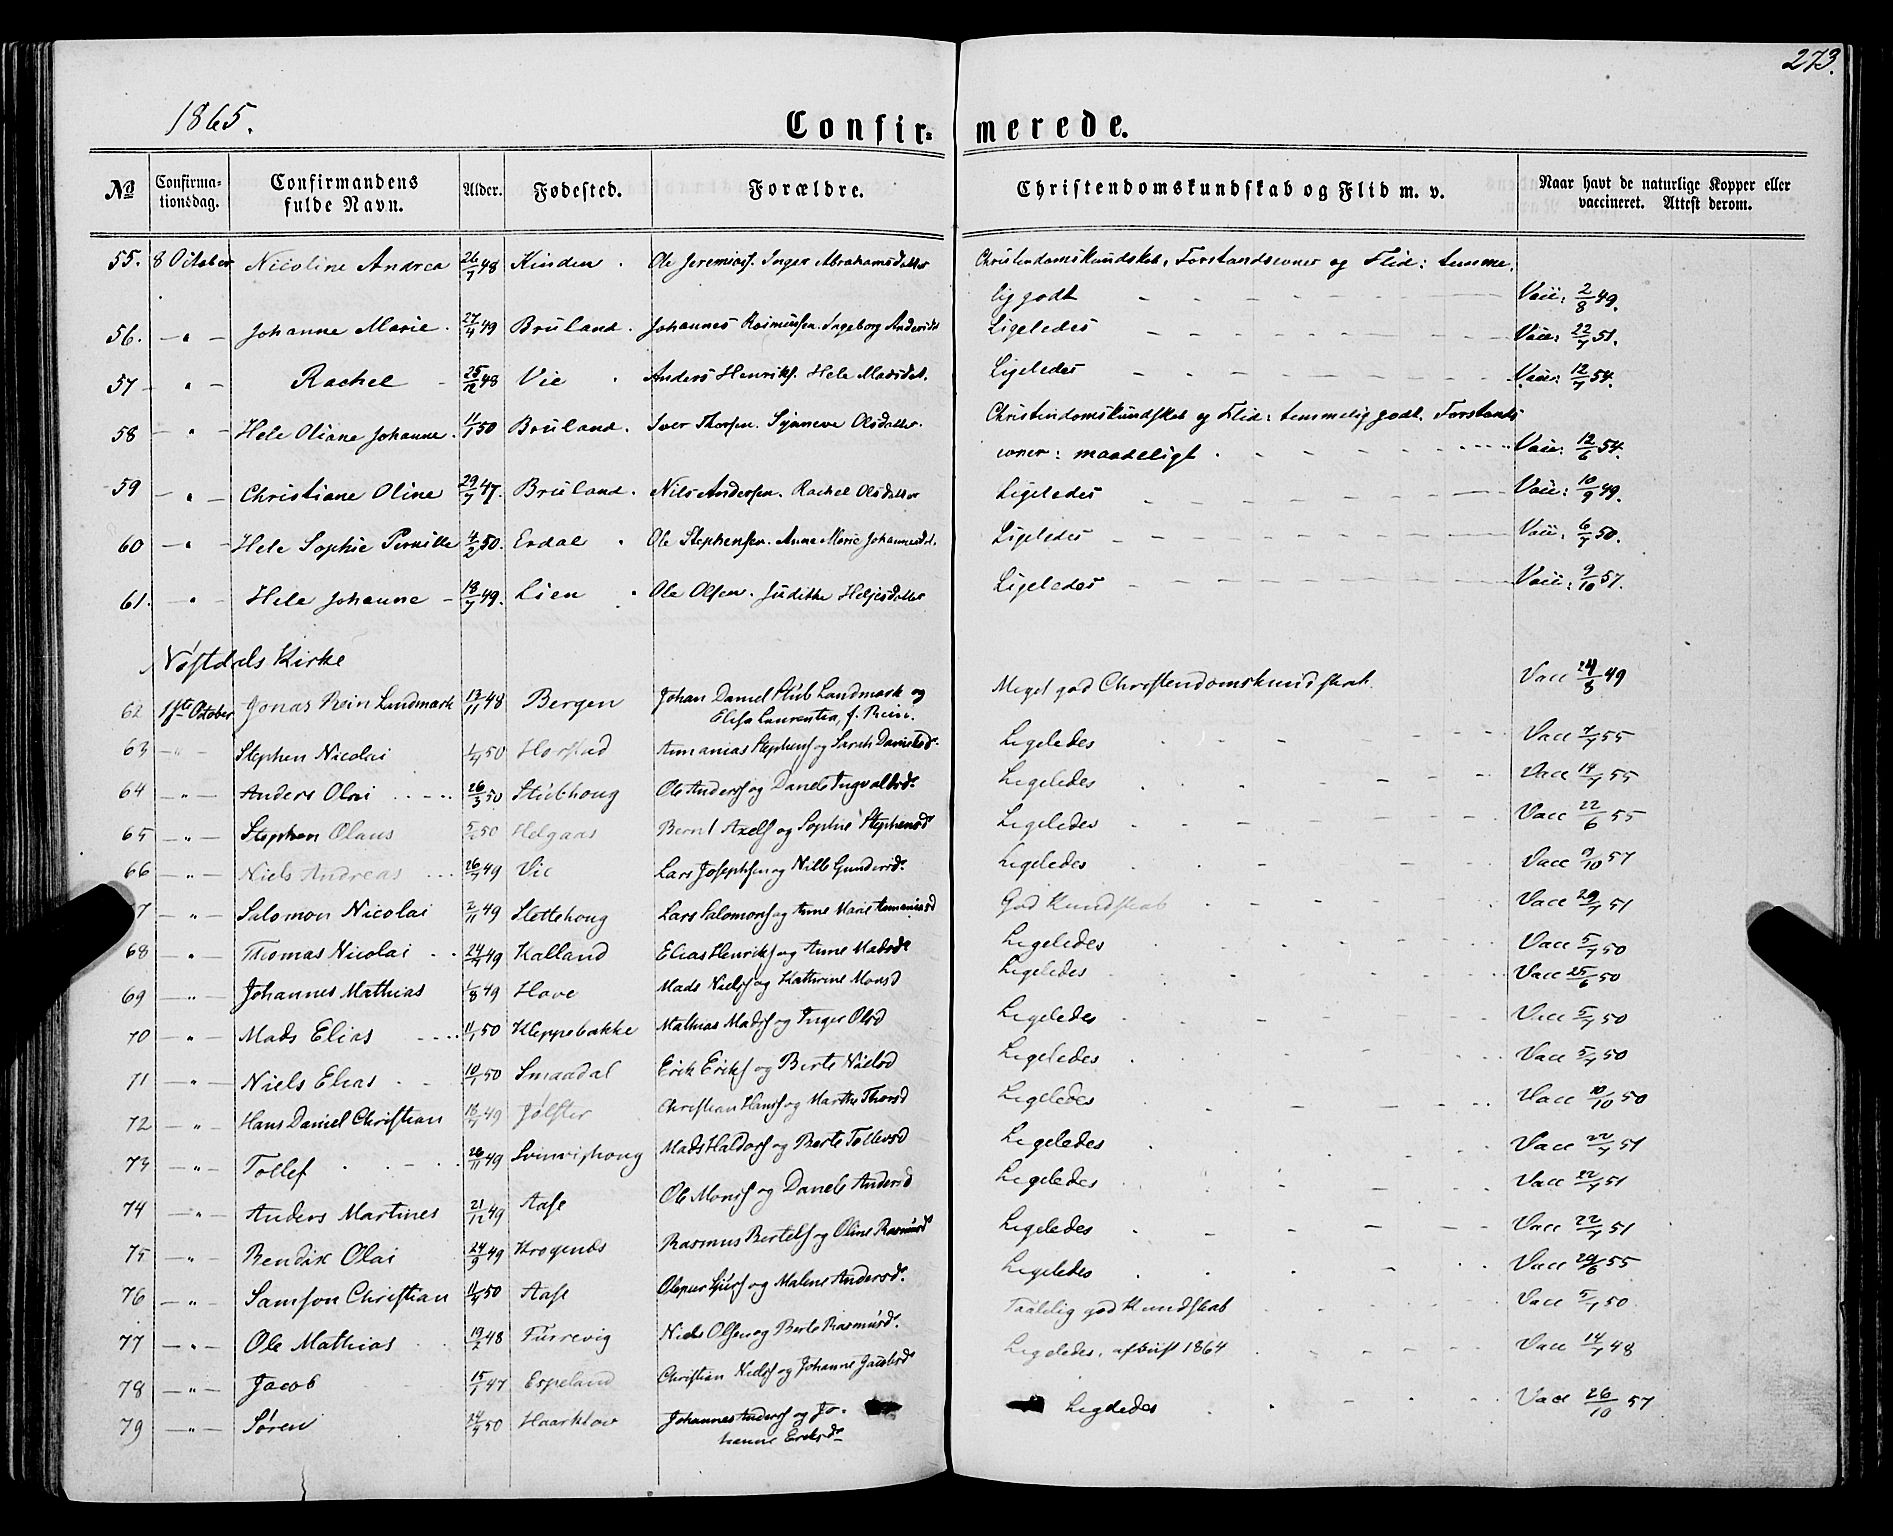 273.
1865.
Confir= merede.
No Confirma-tionsdag. Confirmandens fulde Navn. Alder. Fødested. Forældre. Christendomskundskab og Flid m. v. Naar havt de naturlige Kopper eller vaccineret. Attest derom.
55. 8 October Nicoline Andrea 26/7 48 Kinden . Ole Jeremiasf. Inger Abrahamsdatter Christendomskundskab, Forstandsevner og Flid: temme-
lig godt - - - - Vacc: 2/8 49.
56. - " - Johanne Marie . 27/4 49 Bruland . Johannes Rasmussen. Ingeborg Andersd. Ligeledes - - - - Vacc: 22/7 51.
57 - " - Rachel - 25/12 48 Vie . Anders Henriksf. Hele Madsdat. Ligeledes - - - - Vacc: 12/7 54.
58 - " - Hele Oliane Johanne . 11/1 50 Bruland . Iver Thorsen. Synneve Olsdatter. Christendomskundskab og Flid: temmelig godt. Forstands
evner: maadeligt . - - - - Vacc: 12/6 54.
59 - " - Christiane Oline 29/7 47. Bruland . Nils Andersen. Rachel Olsdatter Ligeledes - - - - Vacc: 10/9 49.
60 - " - Hele Sophie Pernille 4/2 50. Erdal . Ole Stephensen. Anne Marie Johannesdt. Ligeledes - - - - Vacc: 6/7 50.
61. " - Hele Johanne - 18/7 49. Lien . Ole Olsen. Judithe Helgesdatter Ligeledes - - - - Vacc: 9/10 57.
Nøstdals Kirke
62 1ste October Jonas Rein Landmark 13/11 48 Bergen Johan Daniel Stub Landmark og Meget god Christendomskundskab. Vacc 24/8 49
Elisa Laurentia, f. Rein.
63 - " - Stephen Nicolai 1/4 50 Horstad Annanias Stephensf og Sarah Danielsd. Ligeledes - - - Vacc 7/7 55
64 - " - Anders Olai 26/3 50 Stubhoug Ole Andersf og Danele Ingvaldsd. Ligeledes - - - Vacc 14/7 55
65 - " - Stephen Olaus 50 Helgaas Bernt Axelsf og Sophie Stephensd Ligeledes - - - Vacc 22/6 55
66 - " - Niels Andreas 26/7 49 Vie Lars Josephsen og Nille Gundersd. Ligeledes - - - Vacc 9/10 57
7 - " - Salomon Nicolai 2/11 49 Slettehoug Lars Salomonsf og Anne Marie Annaniasd God Kundskab - - - Vacc 29/7 51
68 - " - Thomas Nicolai 24/7 49 Kalland Elias Henriksf og Anne Madsd Ligeledes - - - Vacc 5/7 50
69 - " - Johannes Mathias 1/8 49 Hove Mads Nielsf og Kathrine Monsd Ligeledes - - - Vacc 25/6 50
70 - " - Mads Elias 11/1 50 Kleppebakke Mathias Madsf og Inger Olsd Ligeledes - - - Vacc 5/7 50
71 - " - Niels Elias 10/1 50 Smaadal Erik Eriksf og Berte Nielsd Ligeledes - - - Vacc 5/7 50
72 - " - Hans Daniel Christian 49 Jølster Christian Hansf og Marthe Thorsd Ligeledes - - - Vacc 10/10 50
73 - " - Tollef 26/11 49 Mads Haldorsf og Berte Tollevsd Ligeledes - - - Vacc 22/7 51
74 - " - Anders Martines 21/12 49 Aase Ole Monsf og Danele Andersd Ligeledes - - - Vacc 22/7 51
75 - " - Bendix Olai 24/9 49 Krogenes Rasmus Bertelsf og Oline Rasmusd Ligeledes - - - Vacc 22/7 51
76 - " - Samson Christian 11/4 50 Aase og Malene Andersd. Ligeledes - - - Vacc 29/6 55
77 - " - Ole Mathias 19/2 48 Furevig Niels Olsen og Berte Rasmusd. Taalelig god Kundskab - - - Vacc 5/7 50
78 - " - Jacob 15/1 47 Espeland Christian Nielsf og Johanne Jacobsd Ligeledes. afviist 1864 - - - Vacc 14/7 48
79 - " - Søren 24/4 50 Haarklav Johannes Andersf og Jo- Ligeledes - - - Vacc 26/10 57
hanne Eriksd